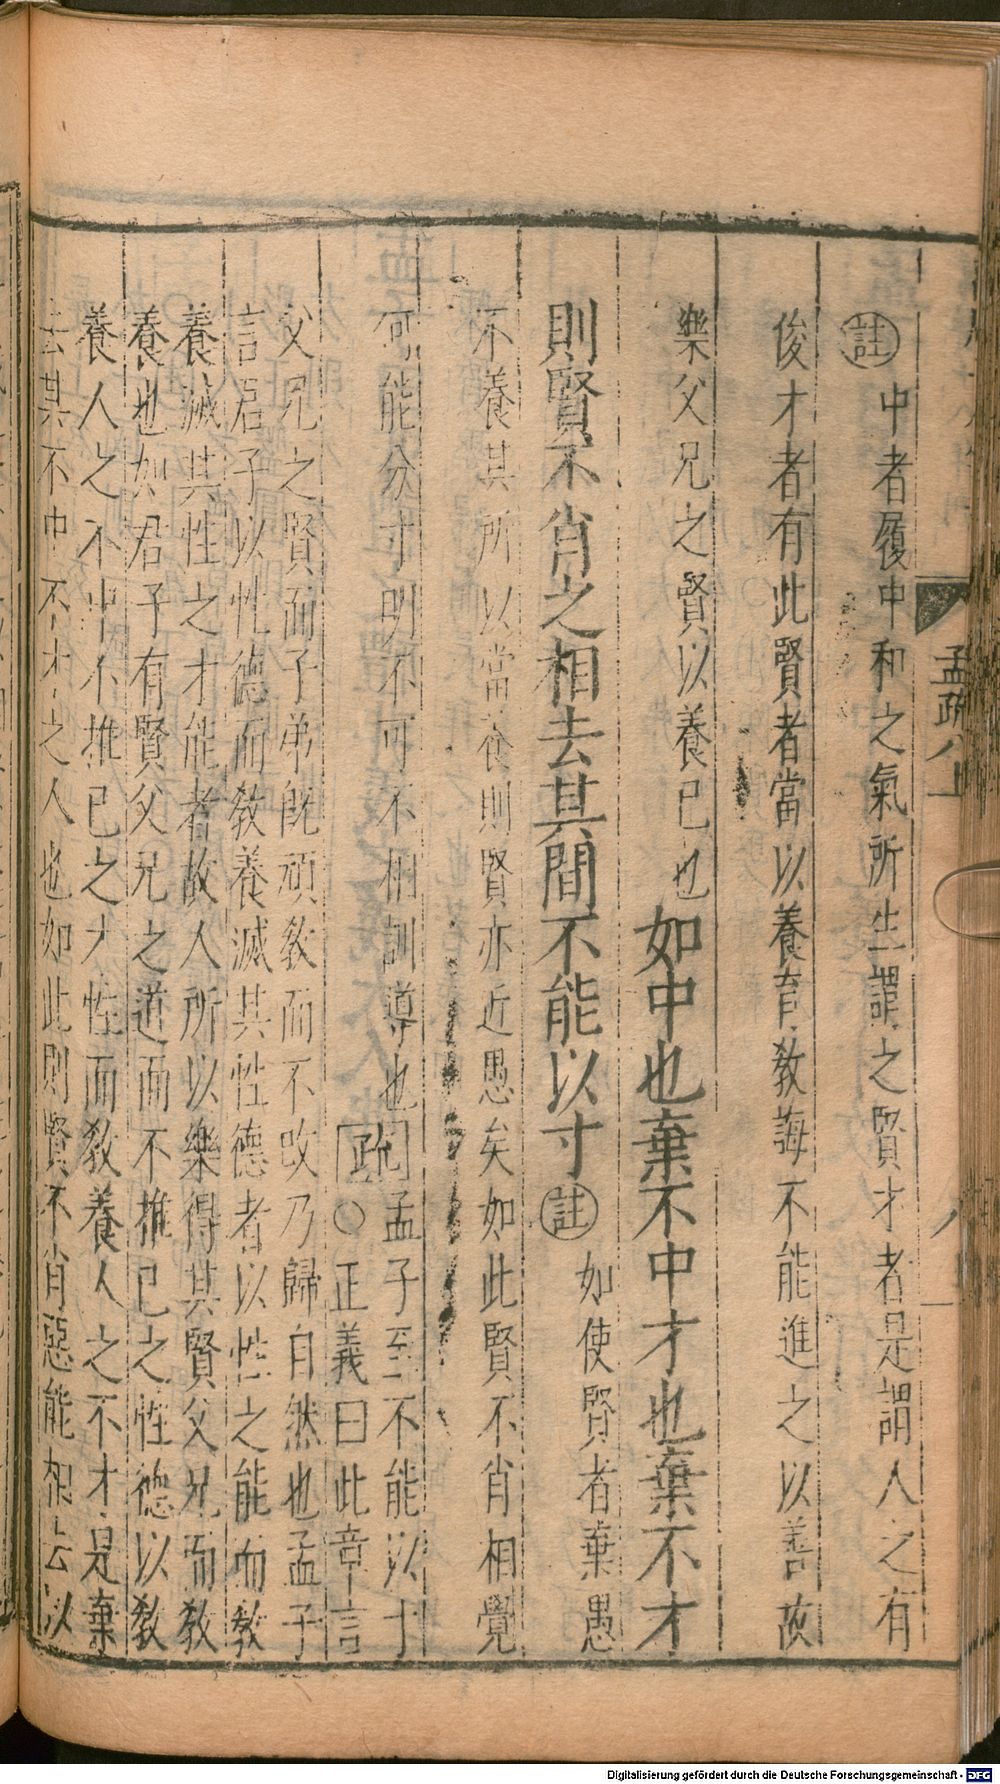 孟疏八上
註中者履中和之氣所生謂之賢才者是謂人之有
俊才者有此賢者當以養育敎誨不能進之以善故
樂父兄之賢以養已也如中也棄不中才也棄不才
則賢不肖之相去其間不能以寸註如使賢者棄愚
不養其所以當養則賢亦近愚矣如此賢不肖相覺
何能分寸明不可不相訓導也疏孟子至不能以寸
○正義曰此章言
父兄之賢而子弟旣頑敎而不改乃歸自然也孟子
言君子以性德而敎養滅其性德者以性之能而敎
養滅其性之才能者故人所以樂得其賢父兄而敎
養也如君子有賢父兄之道而不推已之性德以敎
養人之不中不推已之才性而敎養人之不才是棄
去其不中不才之人也如此則賢不肖惡能相去以
Digitalisierung gefördert durch die Deutsche Forschungsgemeinschaft - DFG